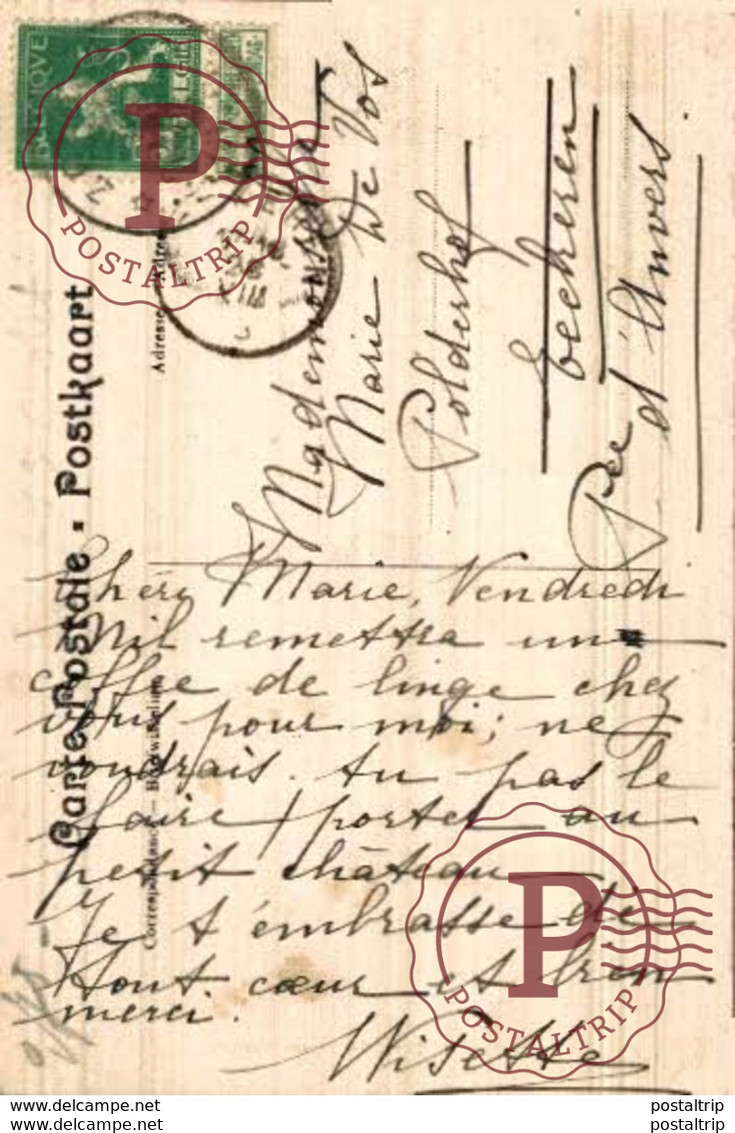 Carte Postale - Postkaart
Correspondance — Briefwisseling
Adresse
Chère Marie, Vendredi
Mil remettra un
coffre de linge chez
vous pour moi; ne
voudrais tu pas le
faire porter au
petit château
Je t'embrasse de
tout cœur et bien
merci.
Wisette
Mademoiselle
Marie De Vos
Polderhof
Eeckeren
Pce d'Anvers
POSTALTRIP
POSTALTRIP
postaltrip postaltrip
postaltrip postaltrip